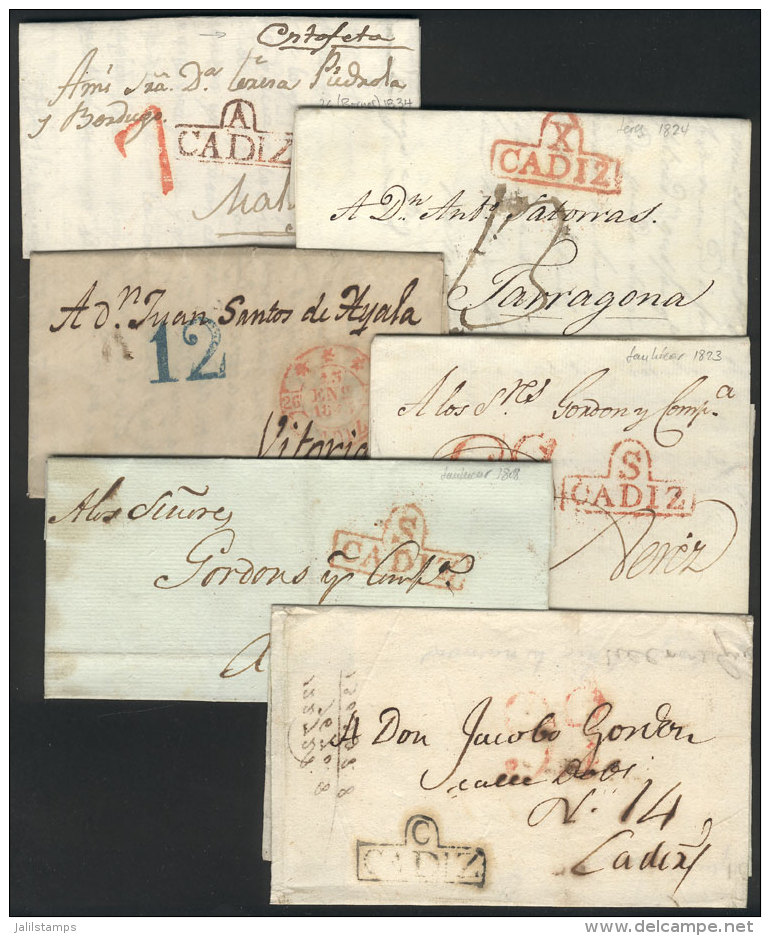 Ortofeta
A mi Sra. Dª Teresa Piedrola
y Bordugo.
1834
7
A
CADIZ
Mal
X
CADIZ
1824
A Dn. Anto. Satorras.
13
Tarragona
A dn. Juan Santos de Ayala
12
15
ENE
Vitoria
Sanlúcar 1823
A los Sres Gordon y Compª
S
CADIZ
Xerez
Sanlucar 1808
A los Señores
S
CADIZ
Gordons y Compª.
A
A Don Jacobo Gordon
calle
N. 14
Cadiz
C
CADIZ
jalilstamps
www.delcampe.net